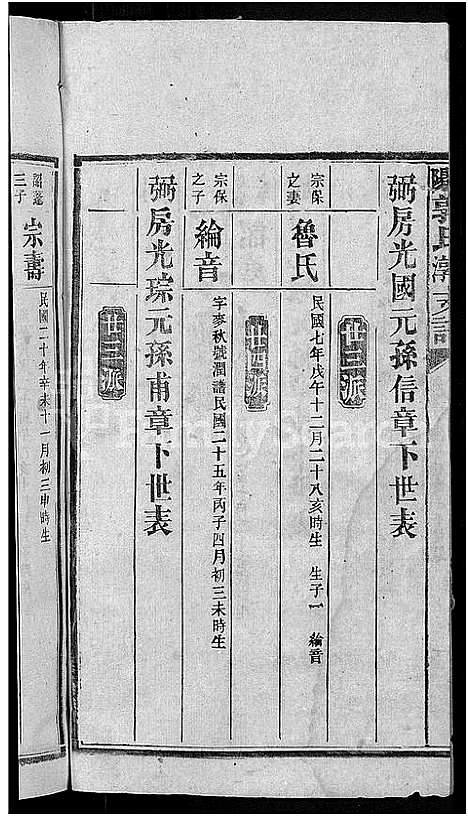 弼房光國元孫信章下世表
廿三派
宗保之妻
魯氏
民國七年戊午十二月二十八亥時生 生子一 綸音
廿四派
宗保之子
綸音
字麥秋號潤譜民國二十五年丙子四月初三未時生
弼房光琮元孫甫章下世表
廿三派
三子
宗壽
民國二十年辛未十一月初三申時生